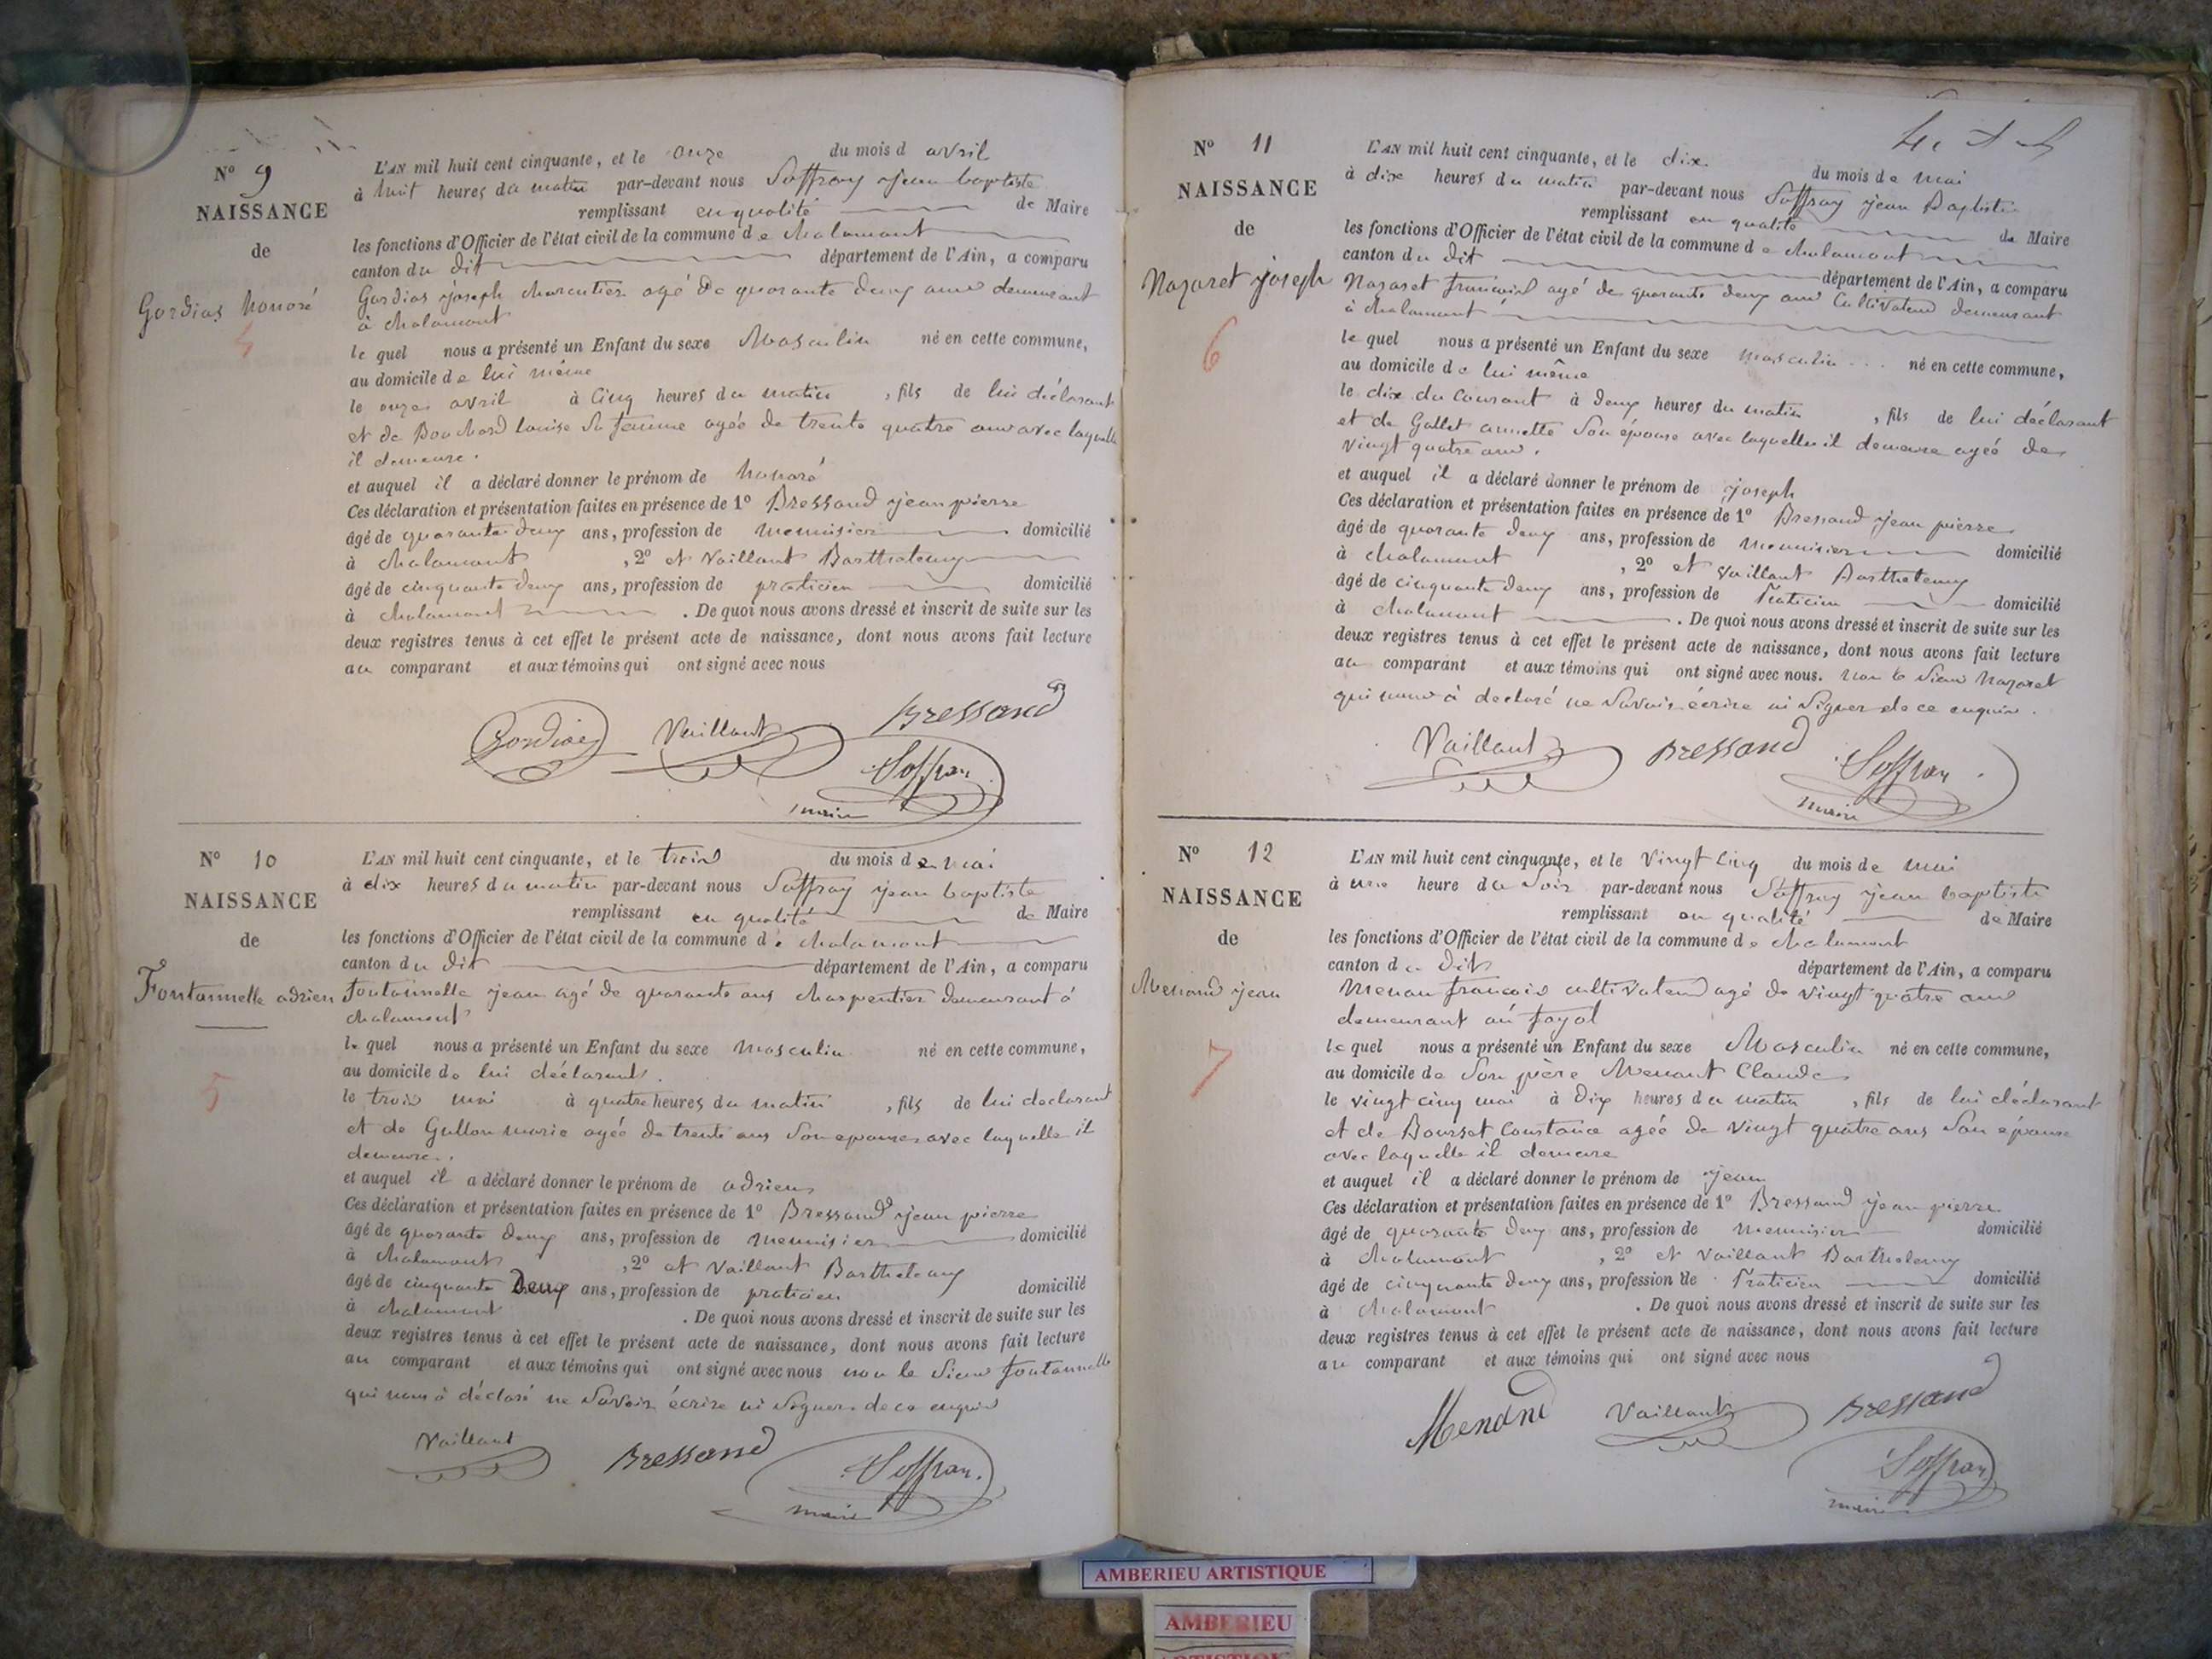 Nº 9
NAISSANCE
de
Gordias honoré
4
L'AN mil huit cent cinquante, et le onze du mois d avril
à huit heures du matin par-devant nous Soffray jean baptiste
remplissant en qualité de Maire
les fonctions d'Officier de l'état civil de la commune de chalamont
canton du dit département de l'Ain, a comparu
Gordias joseph charcutier agé de quarante deux ans demeurant
à chalamont
le quel nous a présenté un Enfant du sexe Masculin né en cette commune,
au domicile de lui même
le onze avril à Cinq heures du matin , fils de lui déclarant
et de Bouchard louise sa femme agée de trente quatre ans avec laquelle
il demeure.
et auquel il a déclaré donner le prénom de honoré
Ces déclaration et présentation faites en présence de 1º Bressand jean pierre
âgé de quarante deux ans, profession de menuisier domicilié
à chalamont , 2º et Vaillant Barthelemy
âgé de cinquante deux ans, profession de praticien domicilié
à chalamont . De quoi nous avons dressé et inscrit de suite sur les
deux registres tenus à cet effet le présent acte de naissance, dont nous avons fait lecture
au comparant et aux témoins qui ont signé avec nous
Gordias Vaillant Bressand
Soffray
maire
Nº 10
NAISSANCE
de
Fontannelle adrien
5
L'AN mil huit cent cinquante, et le trois du mois de mai
à dix heures du matin par-devant nous Soffray jean baptiste
remplissant en qualité de Maire
les fonctions d'Officier de l'état civil de la commune de chalamont
canton du dit département de l'Ain, a comparu
fontannelle jean agé de quarante ans charpentier demeurant à
chalamont
le quel nous a présenté un Enfant du sexe Masculin né en cette commune,
au domicile de lui déclarant.
le trois mai à quatre heures du matin , fils de lui declarant
et de Gullon marie agée de trente ans son epouse avec laquelle il
demeure.
et auquel il a déclaré donner le prénom de adrien
Ces déclaration et présentation faites en présence de 1º Bressand jean pierre
âgé de quarante deux ans, profession de menuisier domicilié
à chalamont , 2º et Vaillant Barthelemy
âgé de cinquante Deux ans, profession de praticien domicilié
à chalamont . De quoi nous avons dressé et inscrit de suite sur les
deux registres tenus à cet effet le présent acte de naissance, dont nous avons fait lecture
au comparant et aux témoins qui ont signé avec nous non le sieur fontannelle
qui nous à déclaré ne Savoir écrire ni Signer de ce enquis
Vaillant Bressand Soffray
maire
Nº 11
NAISSANCE
de
Nazaret joseph
6
L'AN mil huit cent cinquante, et le dix du mois de mai
à dix heures du matin par-devant nous Soffray jean Baptiste
remplissant en qualité de Maire
les fonctions d'Officier de l'état civil de la commune de chalamont
canton du dit département de l'Ain, a comparu
Nazaret francois agé de quarante deux ans Cultivateur demeurant
à chalamont
le quel nous a présenté un Enfant du sexe masculin né en cette commune,
au domicile de lui même
le dix du Courant à deux heures du matin , fils de lui déclarant
et de Gallet annette son épouse avec laquelle il demeure agée de
vingt quatre ans.
et auquel il a déclaré donner le prénom de joseph
Ces déclaration et présentation faites en présence de 1º Bressand jean pierre
âgé de quarante deux ans, profession de menuisier domicilié
à chalamont , 2º et Vaillant Barthelemy
âgé de cinquante deux ans, profession de Praticien domicilié
à chalamont . De quoi nous avons dressé et inscrit de suite sur les
deux registres tenus à cet effet le présent acte de naissance, dont nous avons fait lecture
au comparant et aux témoins qui ont signé avec nous. non le Sieur Nazaret
qui nous à declaré ne Savoir écrire ni Signer de ce enquis.
Vaillant Bressand Soffray
maire
Nº 12
NAISSANCE
de
Menand jean
7
L'AN mil huit cent cinquante, et le Vingt Cinq du mois de mai
à une heure du Soir par-devant nous Soffray jean baptiste
remplissant en qualité de Maire
les fonctions d'Officier de l'état civil de la commune de chalamont
canton du dit département de l'Ain, a comparu
Menan francois cultivateur agé de vingt quatre ans
demeurant au fayol
le quel nous a présenté un Enfant du sexe Masculin né en cette commune,
au domicile de Son père Menant Claude
le vingt cinq mai à Dix heures du matin , fils de lui déclarant
et de Bourset Constance agée de vingt quatre ans Son épouse
avec laquelle il demeure
et auquel il a déclaré donner le prénom de jean
Ces déclaration et présentation faites en présence de 1º Bressand jean pierre
âgé de quarante deux ans, profession de menuisier domicilié
à chalamont , 2º et Vaillant Barthelemy
âgé de cinquante deux ans, profession de Praticien domicilié
à chalamont . De quoi nous avons dressé et inscrit de suite sur les
deux registres tenus à cet effet le présent acte de naissance, dont nous avons fait lecture
au comparant et aux témoins qui ont signé avec nous
Menand Vaillant Bressand
Soffray
maire
AMBERIEU ARTISTIQUE
AMBERIEU
ARTISTIQUE